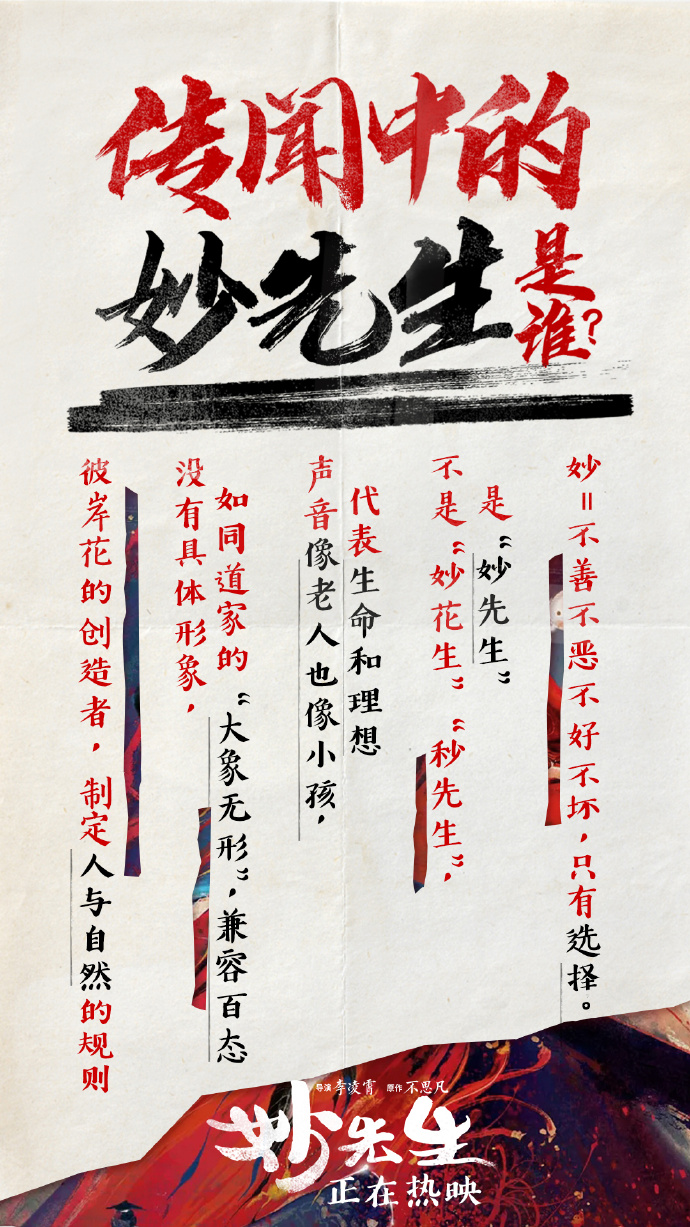 传闻中的
妙先生
是
谁?
妙=不善不恶不好不坏，只有选择。
是“妙先生”
不是“妙花生”“秒先生”，
代表生命和理想
声音像老人也像小孩，
如同道家的“大象无形”，兼容百态
没有具体形象，
彼岸花的创造者，制定人与自然的规则
导演 李凌霄 原作 不思凡
妙先生
正在热映